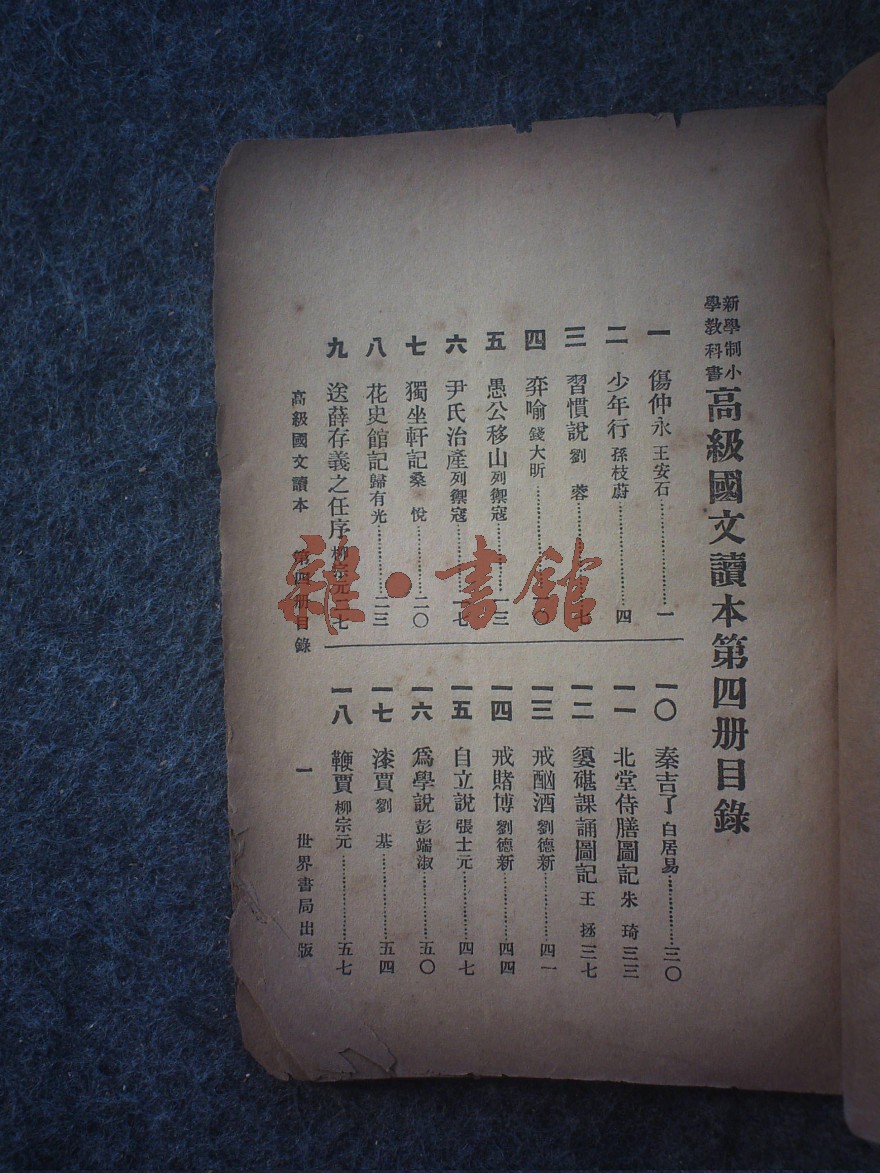 新學制小
學教科書
高級國文讀本第四册目錄
一 傷仲永 王安石 一
二 少年行 孫枝蔚 四
三 習慣說 劉蓉 七
四 弈喻 錢大昕 一〇
五 愚公移山 列禦寇 一三
六 尹氏治產 列禦寇 一七
七 獨坐軒記 桑悅 二〇
八 花史館記 歸有光 二三
九 送薛存義之任序 柳宗元 二七
一〇 秦吉了 白居易 三〇
一一 北堂侍膳圖記 朱琦 三三
一二 媭碪課誦圖記 王拯 三七
一三 戒酗酒 劉德新 四一
一四 戒賭博 劉德新 四四
一五 自立說 張士元 四七
一六 爲學說 彭端淑 五〇
一七 漆賈 劉基 五四
一八 鞭賈 柳宗元 五七
高級國文讀本 第四册目錄 一 世界書局出版
雜·書館